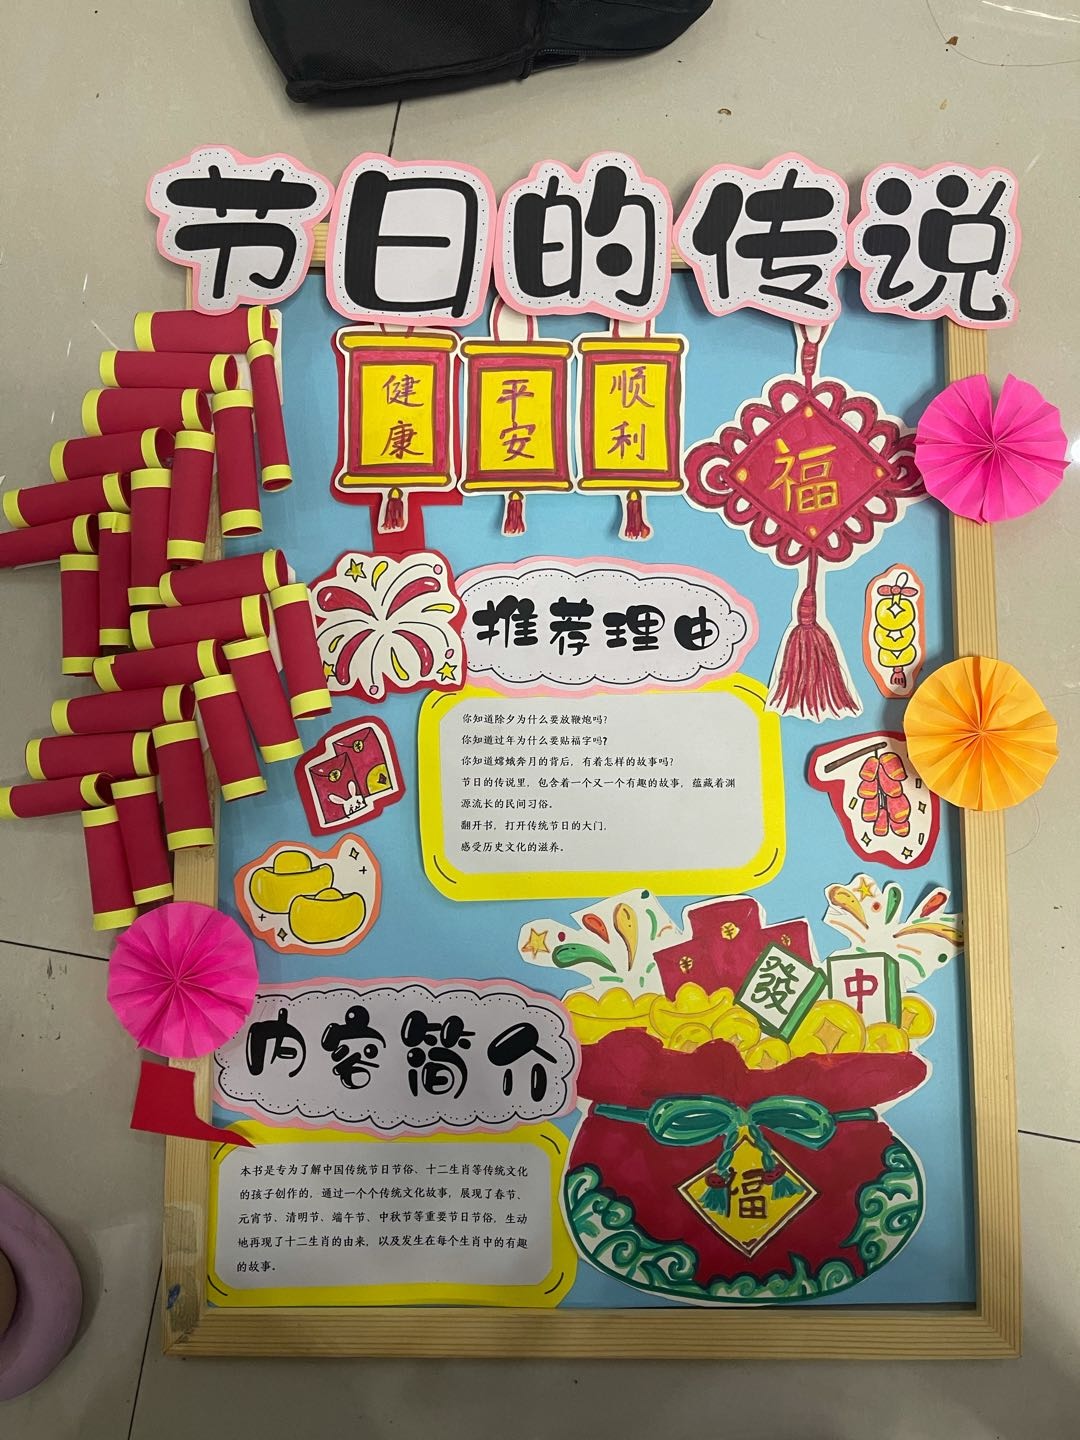 节日的传说
健康
平安
顺利
福
推荐理由
你知道除夕为什么要放鞭炮吗?
你知道过年为什么要贴福字吗?
你知道嫦娥奔月的背后，有着怎样的故事吗?
节日的传说里，包含着一个又一个有趣的故事，蕴藏着渊
源流长的民间习俗。
翻开书，打开传统节日的大门，
感受历史文化的滋养。
發
中
内容简介
本书是专为了解中国传统节日节俗、十二生肖等传统文化
的孩子创作的，通过一个个传统文化故事，展现了春节、
元宵节、清明节、端午节、中秋节等重要节日节俗，生动
地再现了十二生肖的由来，以及发生在每个生肖中的有趣
的故事。
福